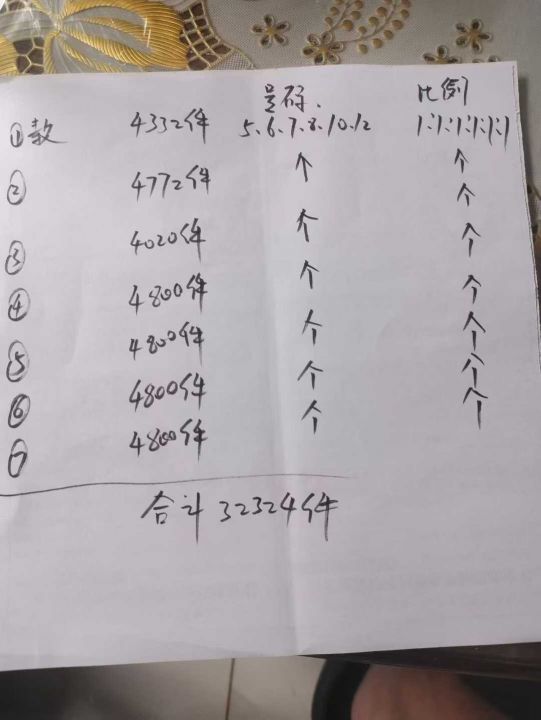 号码. 比例
①款 4332件 5.6.7.8.10.12 1:1:1:1:1:1
② 4772件 个 个
③ 4020件 个 个
④ 4800件 个 个
⑤ 4800件 个 个
⑥ 4800件 个 个
⑦ 4800件 个 个
合计 32324件